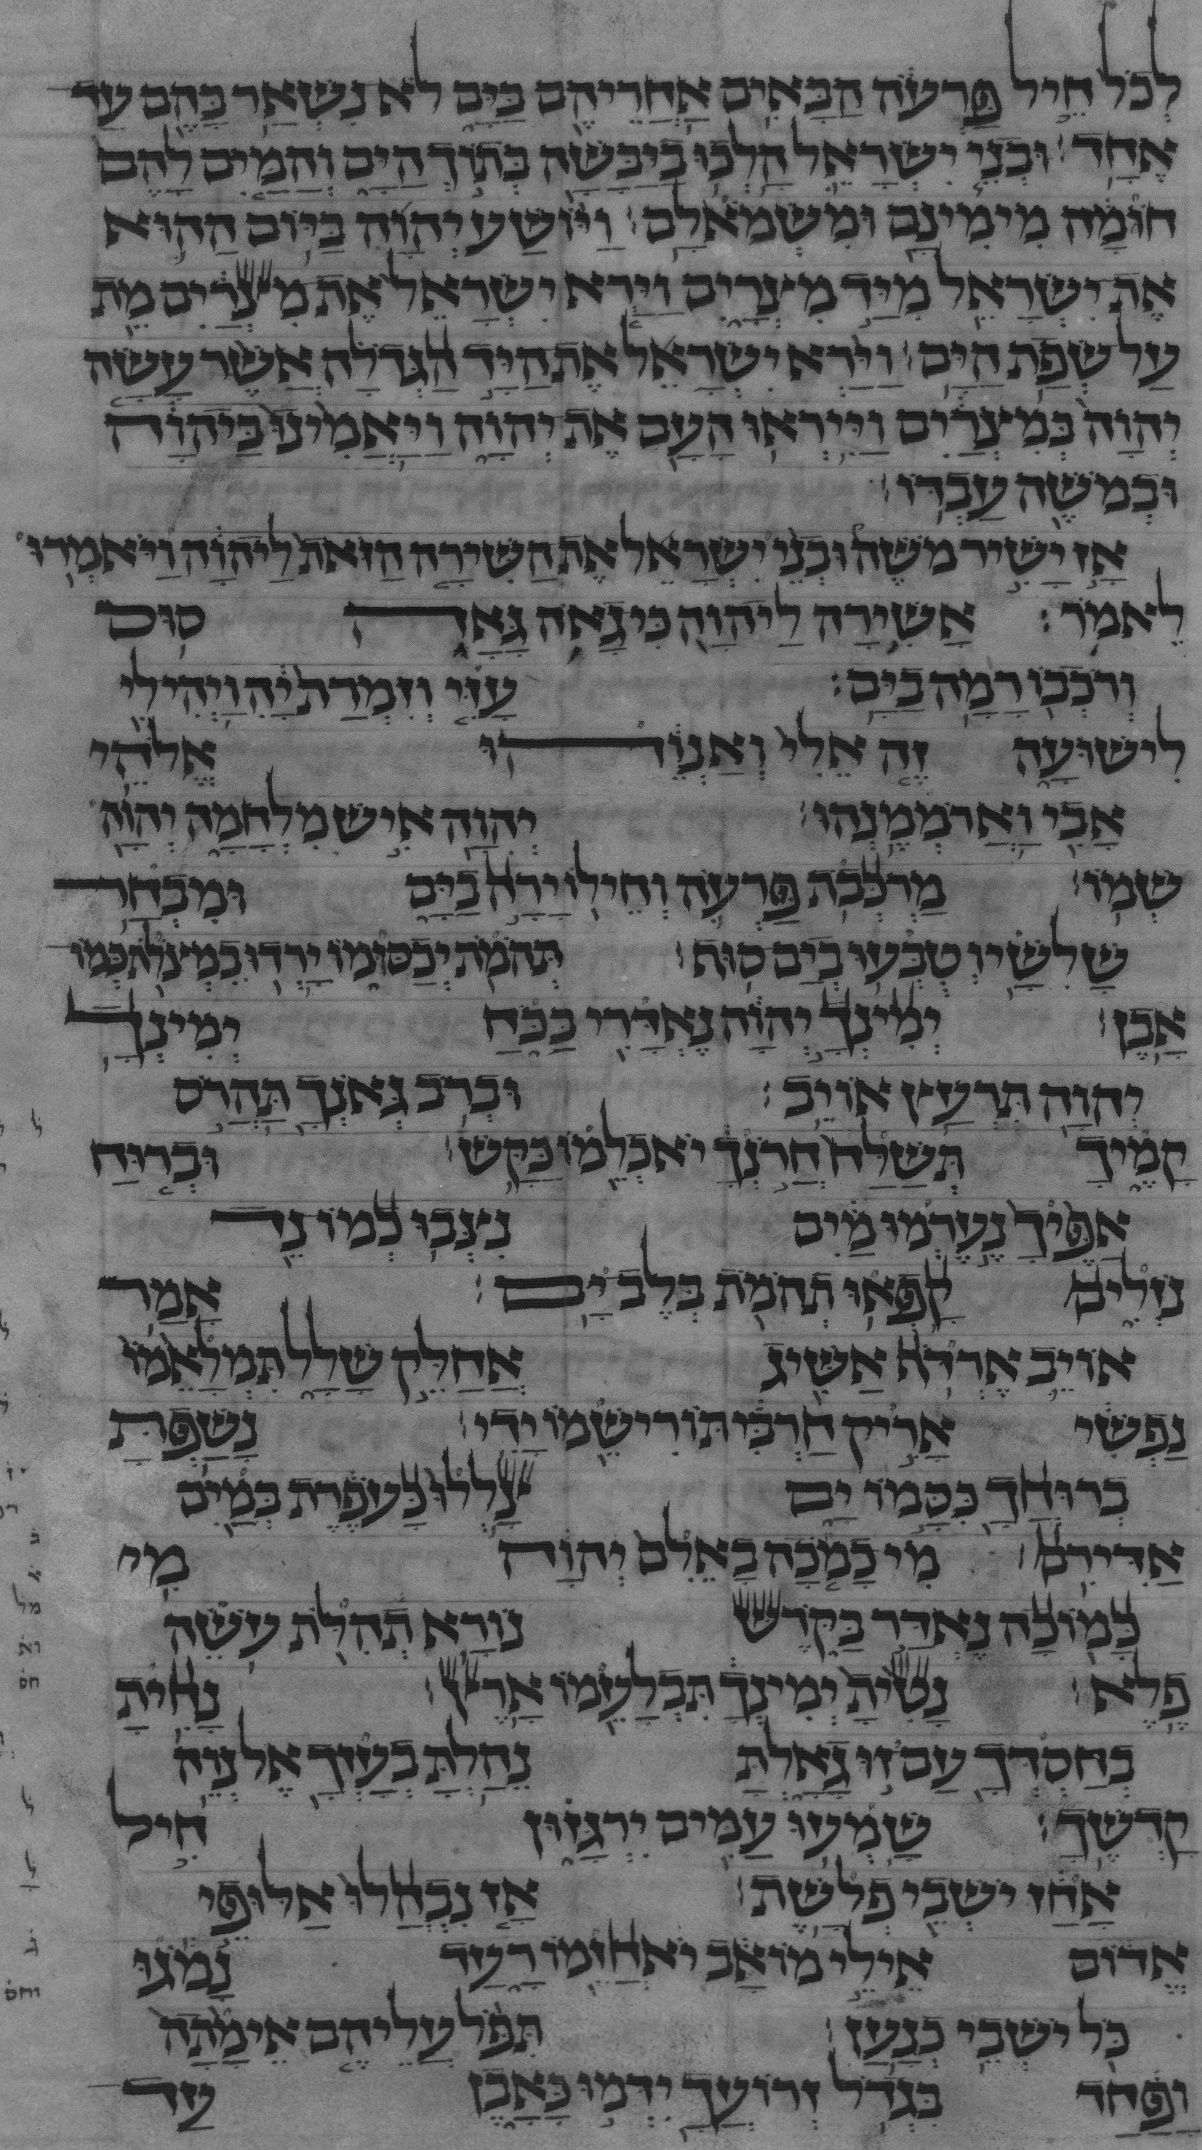 לְכֹל חֵיל פַּרְעֹה הַבָּאִים אַחֲרֵיהֶם בַּיָּם לֹא נִשְׁאַר בָּהֶם עַד
אֶחָד׃ וּבְנֵי יִשְׂרָאֵל הָלְכוּ בַיַּבָּשָׁה בְּתוֹךְ הַיָּם וְהַמַּיִם לָהֶם
חוֹמָה מִימִינָם וּמִשְּׂמֹאלָם׃ וַיּוֹשַׁע יְהוָה בַּיּוֹם הַהוּא
אֶת יִשְׂרָאֵל מִיַּד מִצְרָיִם וַיַּרְא יִשְׂרָאֵל אֶת מִצְרַיִם מֵת
עַל שְׂפַת הַיָּם׃ וַיַּרְא יִשְׂרָאֵל אֶת הַיָּד הַגְּדֹלָה אֲשֶׁר עָשָׂה
יְהוָה בְּמִצְרַיִם וַיִּירְאוּ הָעָם אֶת יְהוָה וַיַּאֲמִינוּ בַּיהוָה
וּבְמֹשֶׁה עַבְדּוֹ׃
אָז יָשִׁיר מֹשֶׁה וּבְנֵי יִשְׂרָאֵל אֶת הַשִּׁירָה הַזֹּאת לַיהוָה וַיֹּאמְרוּ
לֵאמֹר׃ אָשִׁירָה לַיהוָה כִּי גָאֹה גָּאָה סוּס
וְרֹכְבוֹ רָמָה בַיָּם׃ עָזִּי וְזִמְרָת יָהּ וַיְהִי לִי
לִישׁוּעָה זֶה אֵלִי וְאַנְוֵהוּ אֱלֹהֵי
אָבִי וַאֲרֹמְמֶנְהוּ׃ יְהוָה אִישׁ מִלְחָמָה יְהוָה
שְׁמוֹ׃ מַרְכְּבֹת פַּרְעֹה וְחֵילוֹ יָרָה בַיָּם וּמִבְחַר
שָׁלִשָׁיו טֻבְּעוּ בְיַם סוּף׃ תְּהֹמֹת יְכַסְיֻמוּ יָרְדוּ בִמְצוֹלֹת כְּמוֹ
אָבֶן׃ יְמִינְךָ יְהוָה נֶאְדָּרִי בַּכֹּחַ יְמִינְךָ
יְהוָה תִּרְעַץ אוֹיֵב׃ וּבְרֹב גְּאוֹנְךָ תַּהֲרֹס
קָמֶיךָ תְּשַׁלַּח חֲרֹנְךָ יֹאכְלֵמוֹ כַּקַּשׁ׃ וּבְרוּחַ
אַפֶּיךָ נֶעֶרְמוּ מַיִם נִצְּבוּ כְמוֹ נֵד
נֹזְלִים קָפְאוּ תְהֹמֹת בְּלֶב יָם׃ אָמַר
אוֹיֵב אֶרְדֹּף אַשִּׂיג אֲחַלֵּק שָׁלָל תִּמְלָאֵמוֹ
נַפְשִׁי אָרִיק חַרְבִּי תּוֹרִישֵׁמוֹ יָדִי׃ נָשַׁפְתָּ
בְרוּחֲךָ כִּסָּמוֹ יָם צָלְלוּ כַּעוֹפֶרֶת בְּמַיִם
אַדִּירִים׃ מִי כָמֹכָה בָּאֵלִם יְהוָה מִי
כָּמֹכָה נֶאְדָּר בַּקֹּדֶשׁ נוֹרָא תְהִלֹּת עֹשֵׂה
פֶלֶא׃ נָטִיתָ יְמִינְךָ תִּבְלָעֵמוֹ אָרֶץ׃ נָחִיתָ
בְחַסְדְּךָ עַם זוּ גָּאָלְתָּ נֵהַלְתָּ בְעָזְּךָ אֶל נְוֵה
קָדְשֶׁךָ׃ שָׁמְעוּ עַמִּים יִרְגָּזוּן חִיל
אָחַז יֹשְׁבֵי פְּלָשֶׁת׃ אָז נִבְהֲלוּ אַלּוּפֵי
אֱדוֹם אֵילֵי מוֹאָב יֹאחֲזֵמוֹ רָעַד נָמֹגוּ
כֹּל יֹשְׁבֵי כְנָעַן׃ תִּפֹּל עֲלֵיהֶם אֵימָתָה
וָפַחַד בִּגְדֹל זְרוֹעֲךָ יִדְּמוּ כָּאָבֶן עַד